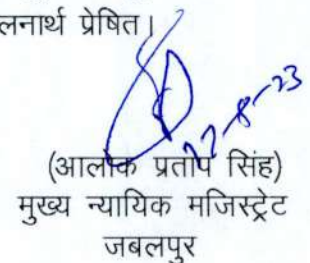 लनार्थ प्रेषित।
22-8-23
(आलोक प्रताप सिंह)
मुख्य न्यायिक मजिस्ट्रेट
जबलपुर